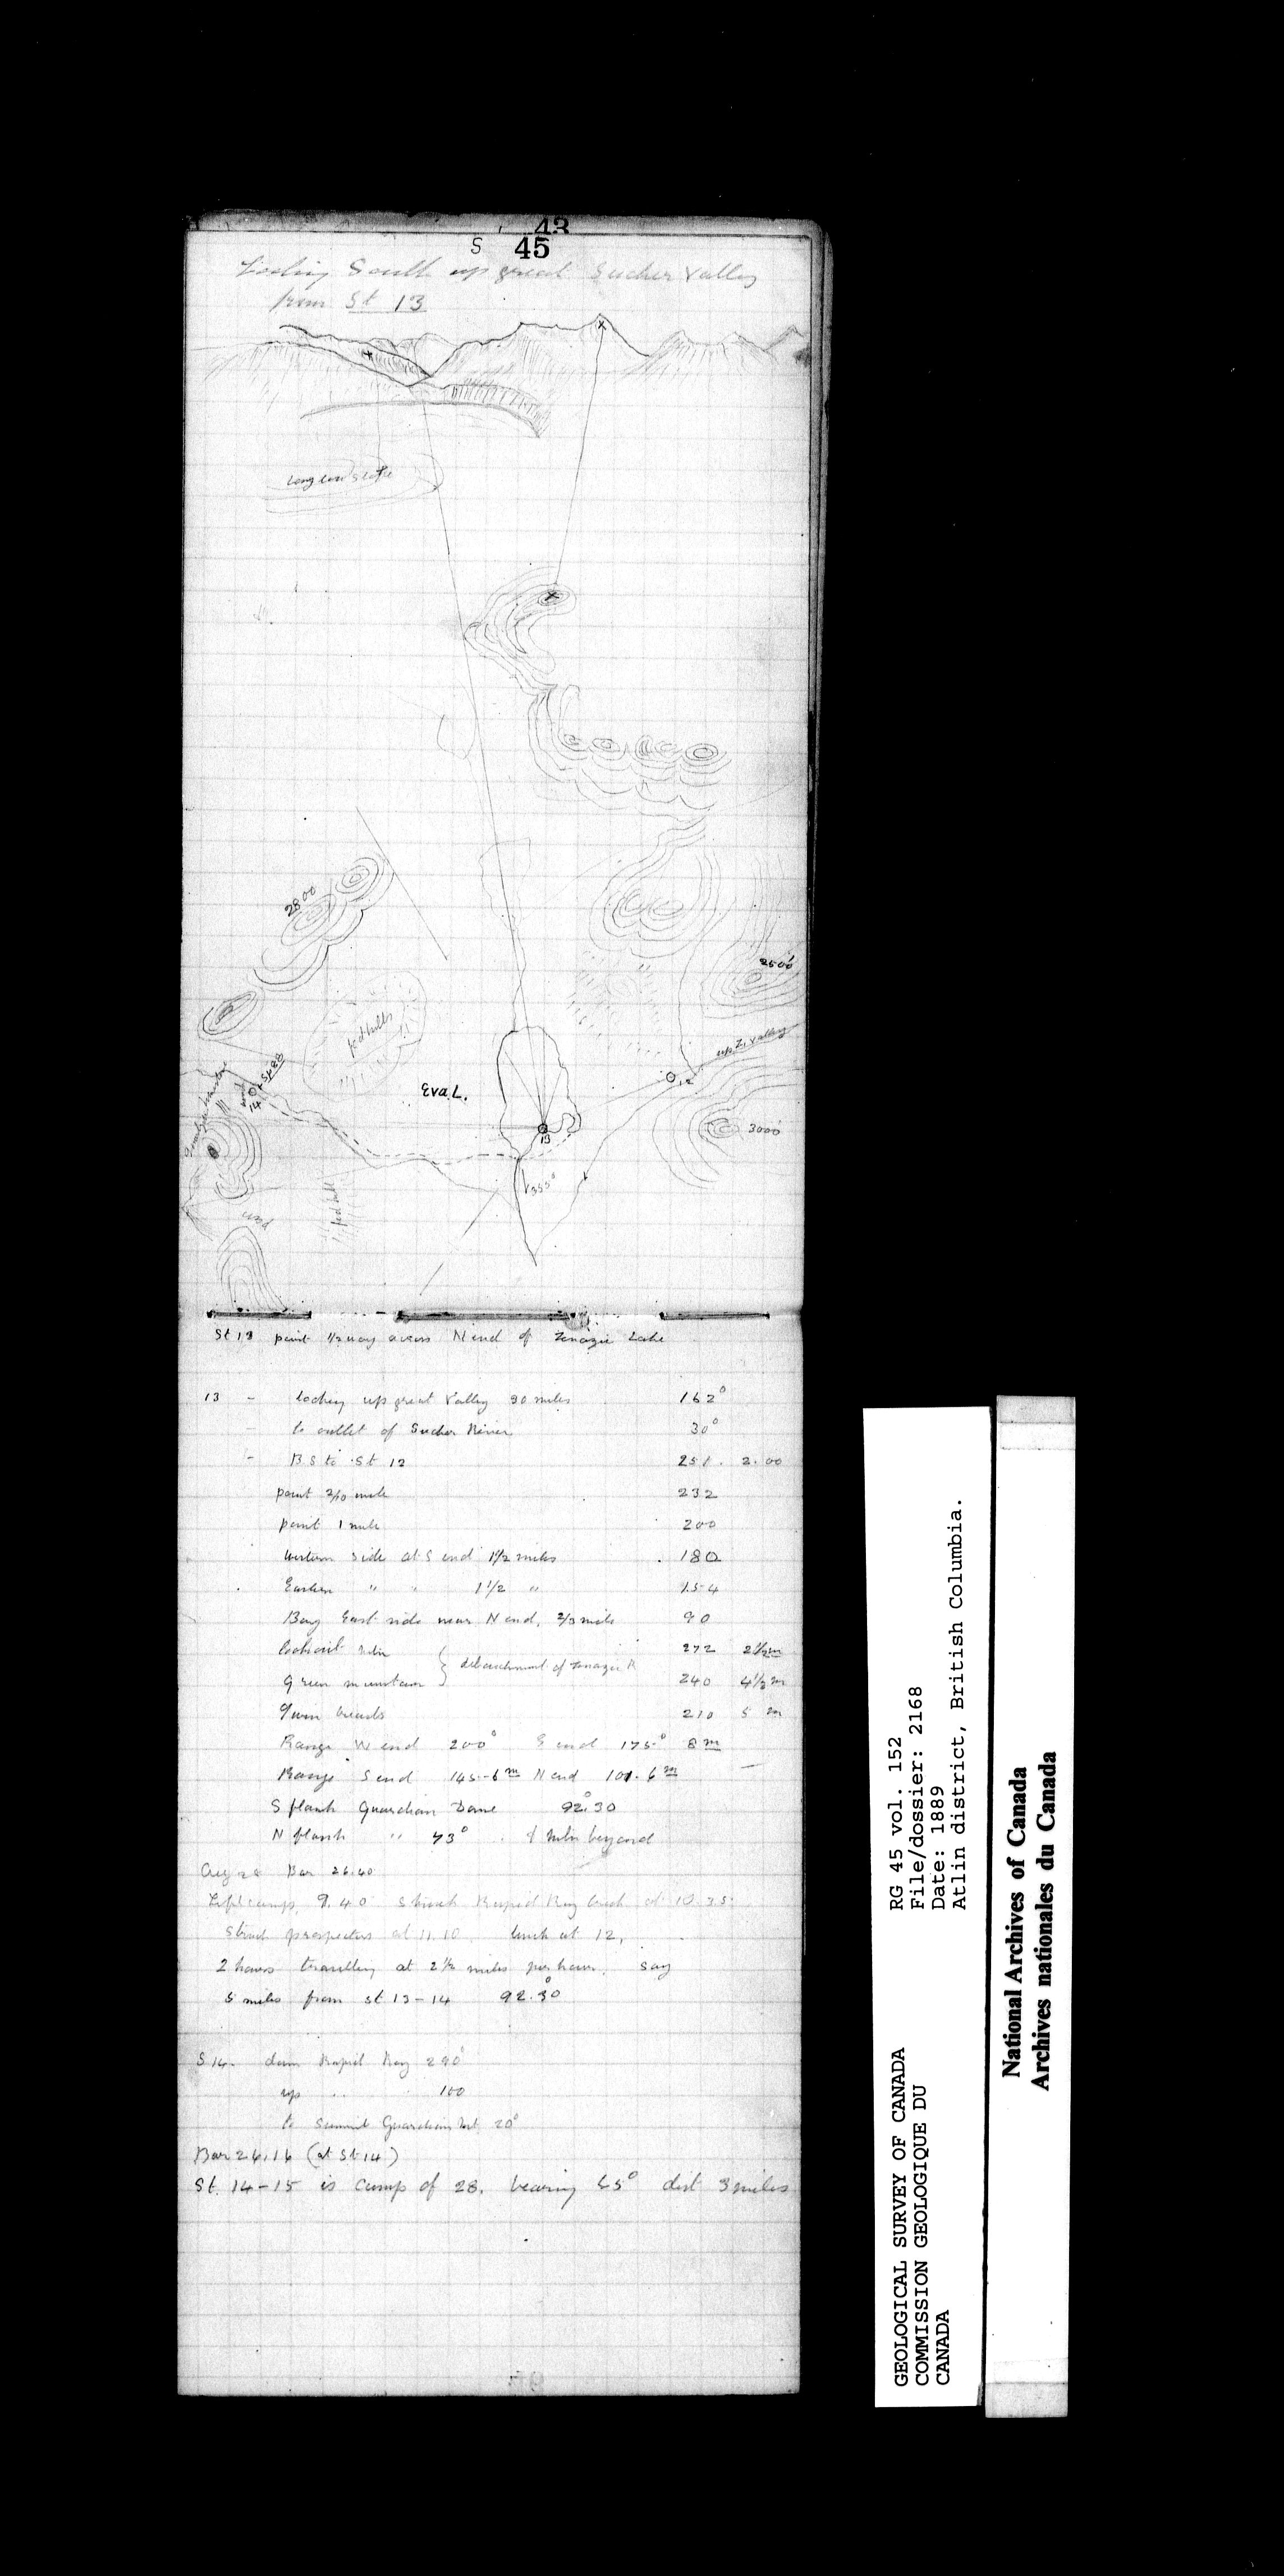 43
S 45
Looking South up great Sucker Valley
from St 13
long low slope
2800
2500'
foot hills
up Z. valley
14
12
Eva L.
13
3000'
353°
foot hill
St 13 point 1/2 way across N end of Zenazie Lake
13 - looking up great Valley 30 miles 162°
- to outlet of Sucker River 30°
- BS to St 12 251. 2.00
point 2/10 mile 232
point 1 mile 200
Western side at S end 1 1/2 miles 180
Eastern " " 1 1/2 " 154
Bay East side near N end, 2/3 mile 90
Lookout Mtn 272 2 1/2 m
debouchment of Zenazie R
Green mountain 240 4 1/2 m
Twin heads 210 5 m
Range W end 200° E end 175° 8 m
Range S end 145 - 6 m N end 101. 6 m
S flank Guardian Dome 92.°30
N flank " 43° & Mtn beyond
Aug 28 Bar 26.40
Left camp, 9.40 Struck Rapid Roy creek at 10.35
Struck prospectors at 11.10, lunch at 12,
2 hours travelling at 2 1/2 miles per hour, say
5 miles from St 13-14 92.°30
S 14. down Rapid Roy 290°
up " " 100
to Summit Guardian Mt 20°
Bar 26.16 (at St 14)
St. 14-15 is camp of 28. bearing 45° dist 3 miles
GEOLOGICAL SURVEY OF CANADA
COMMISSION GEOLOGIQUE DU
CANADA
RG 45 vol. 152
File/dossier: 2168
Date: 1889
Atlin district, British Columbia.
National Archives of Canada
Archives nationales du Canada